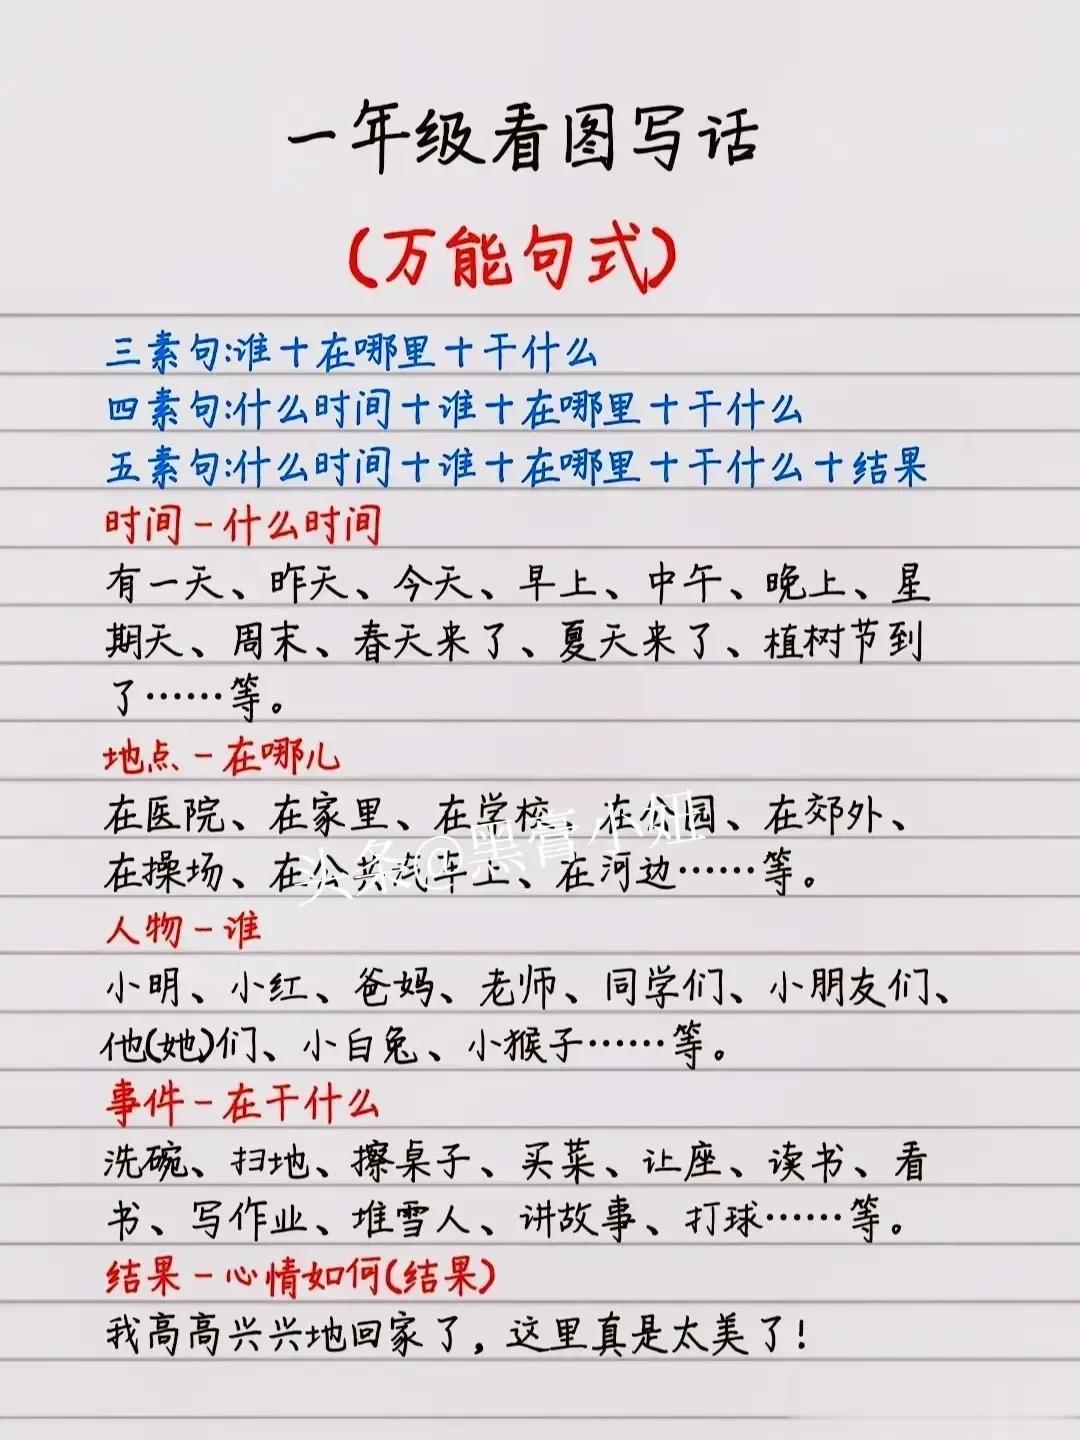 一年级看图写话
(万能句式)
三素句:谁+在哪里+干什么
四素句:什么时间+谁+在哪里+干什么
五素句:什么时间+谁+在哪里+干什么+结果
时间-什么时间
有一天、昨天、今天、早上、中午、晚上、星
期天、周末、春天来了、夏天来了、植树节到
了……等。
地点-在哪儿
在医院、在家里、在学校、在公园、在郊外、
在操场、在公共汽车上、在河边……等。
头条@黑膏小妞
人物-谁
小明、小红、爸妈、老师、同学们、小朋友们、
他(她)们、小白兔、小猴子……等。
事件-在干什么
洗碗、扫地、擦桌子、买菜、让座、读书、看
书、写作业、堆雪人、讲故事、打球……等。
结果-心情如何(结果)
我高高兴兴地回家了,这里真是太美了!